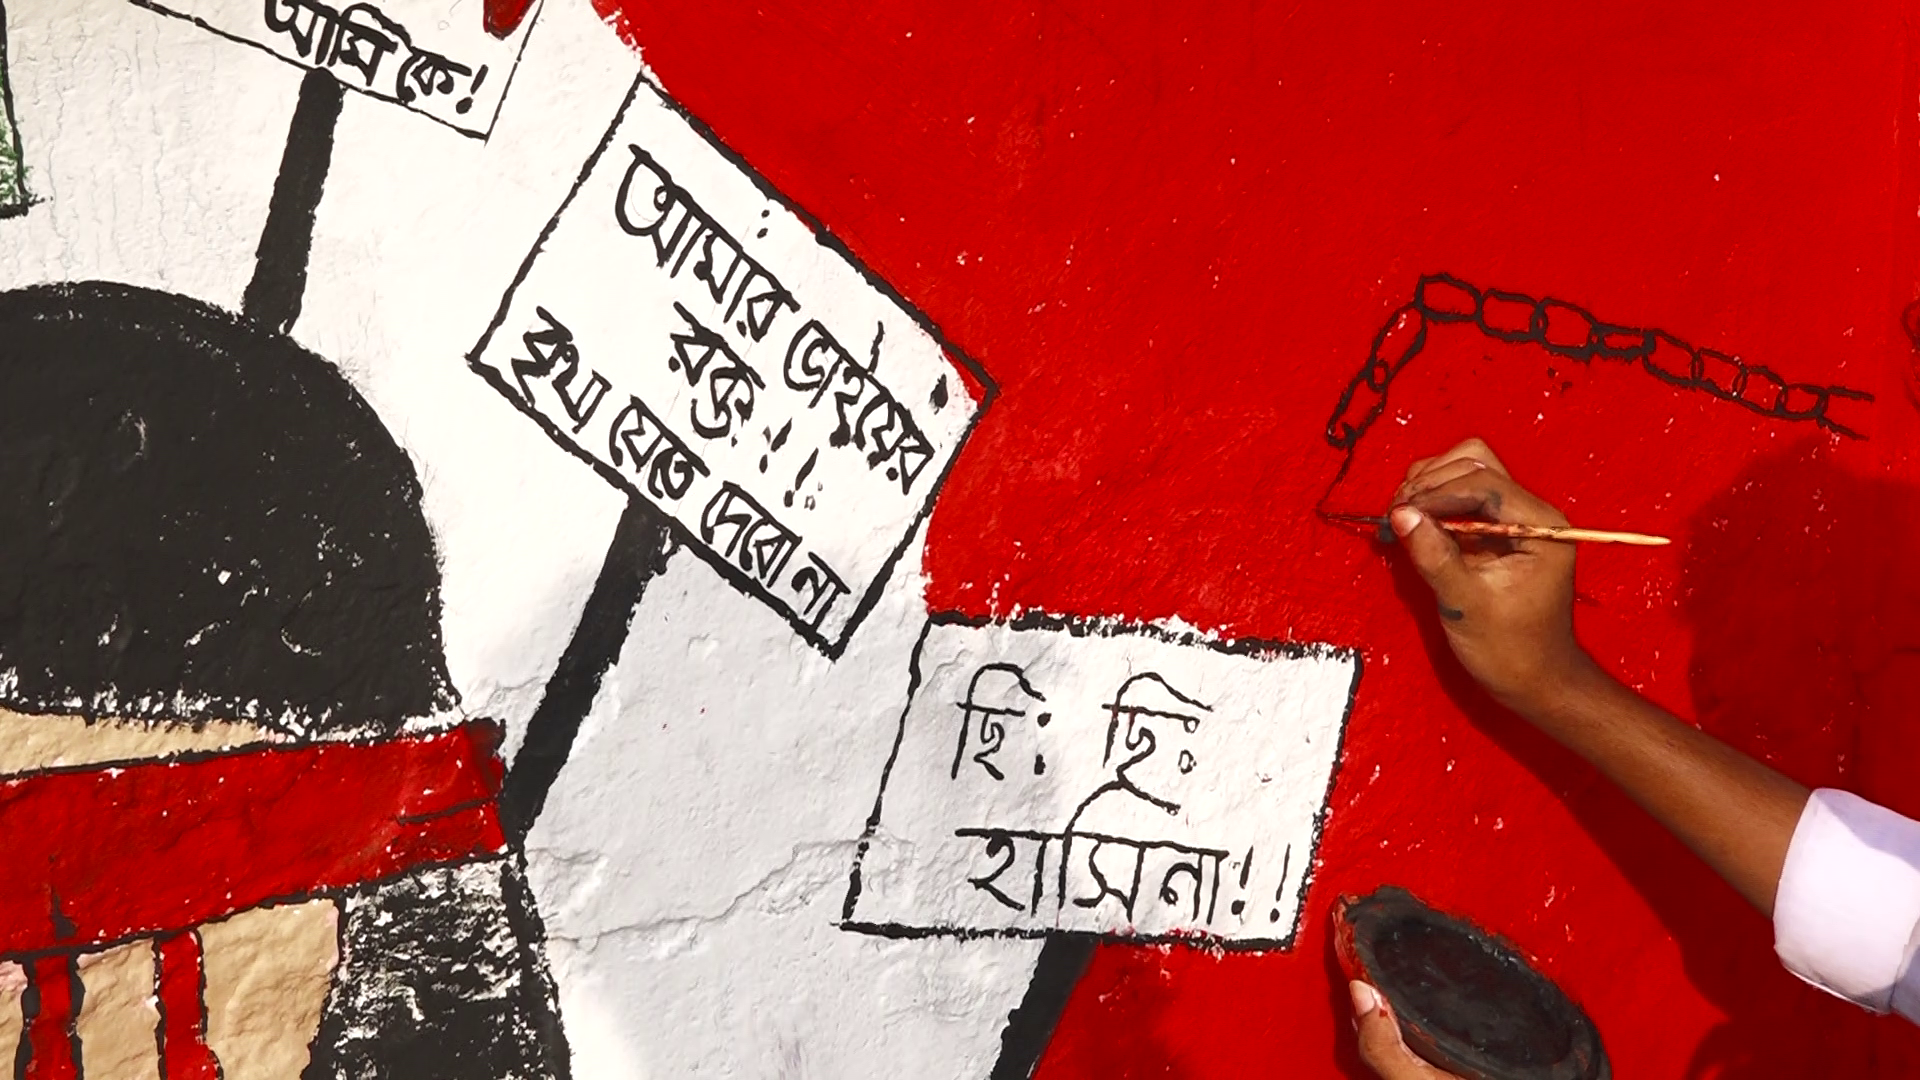 আমি কে!
আমার ভাইয়ের
রক্ত!!
বৃথা যেতে দেবো না
ছি: ছি:
হাসিনা!!